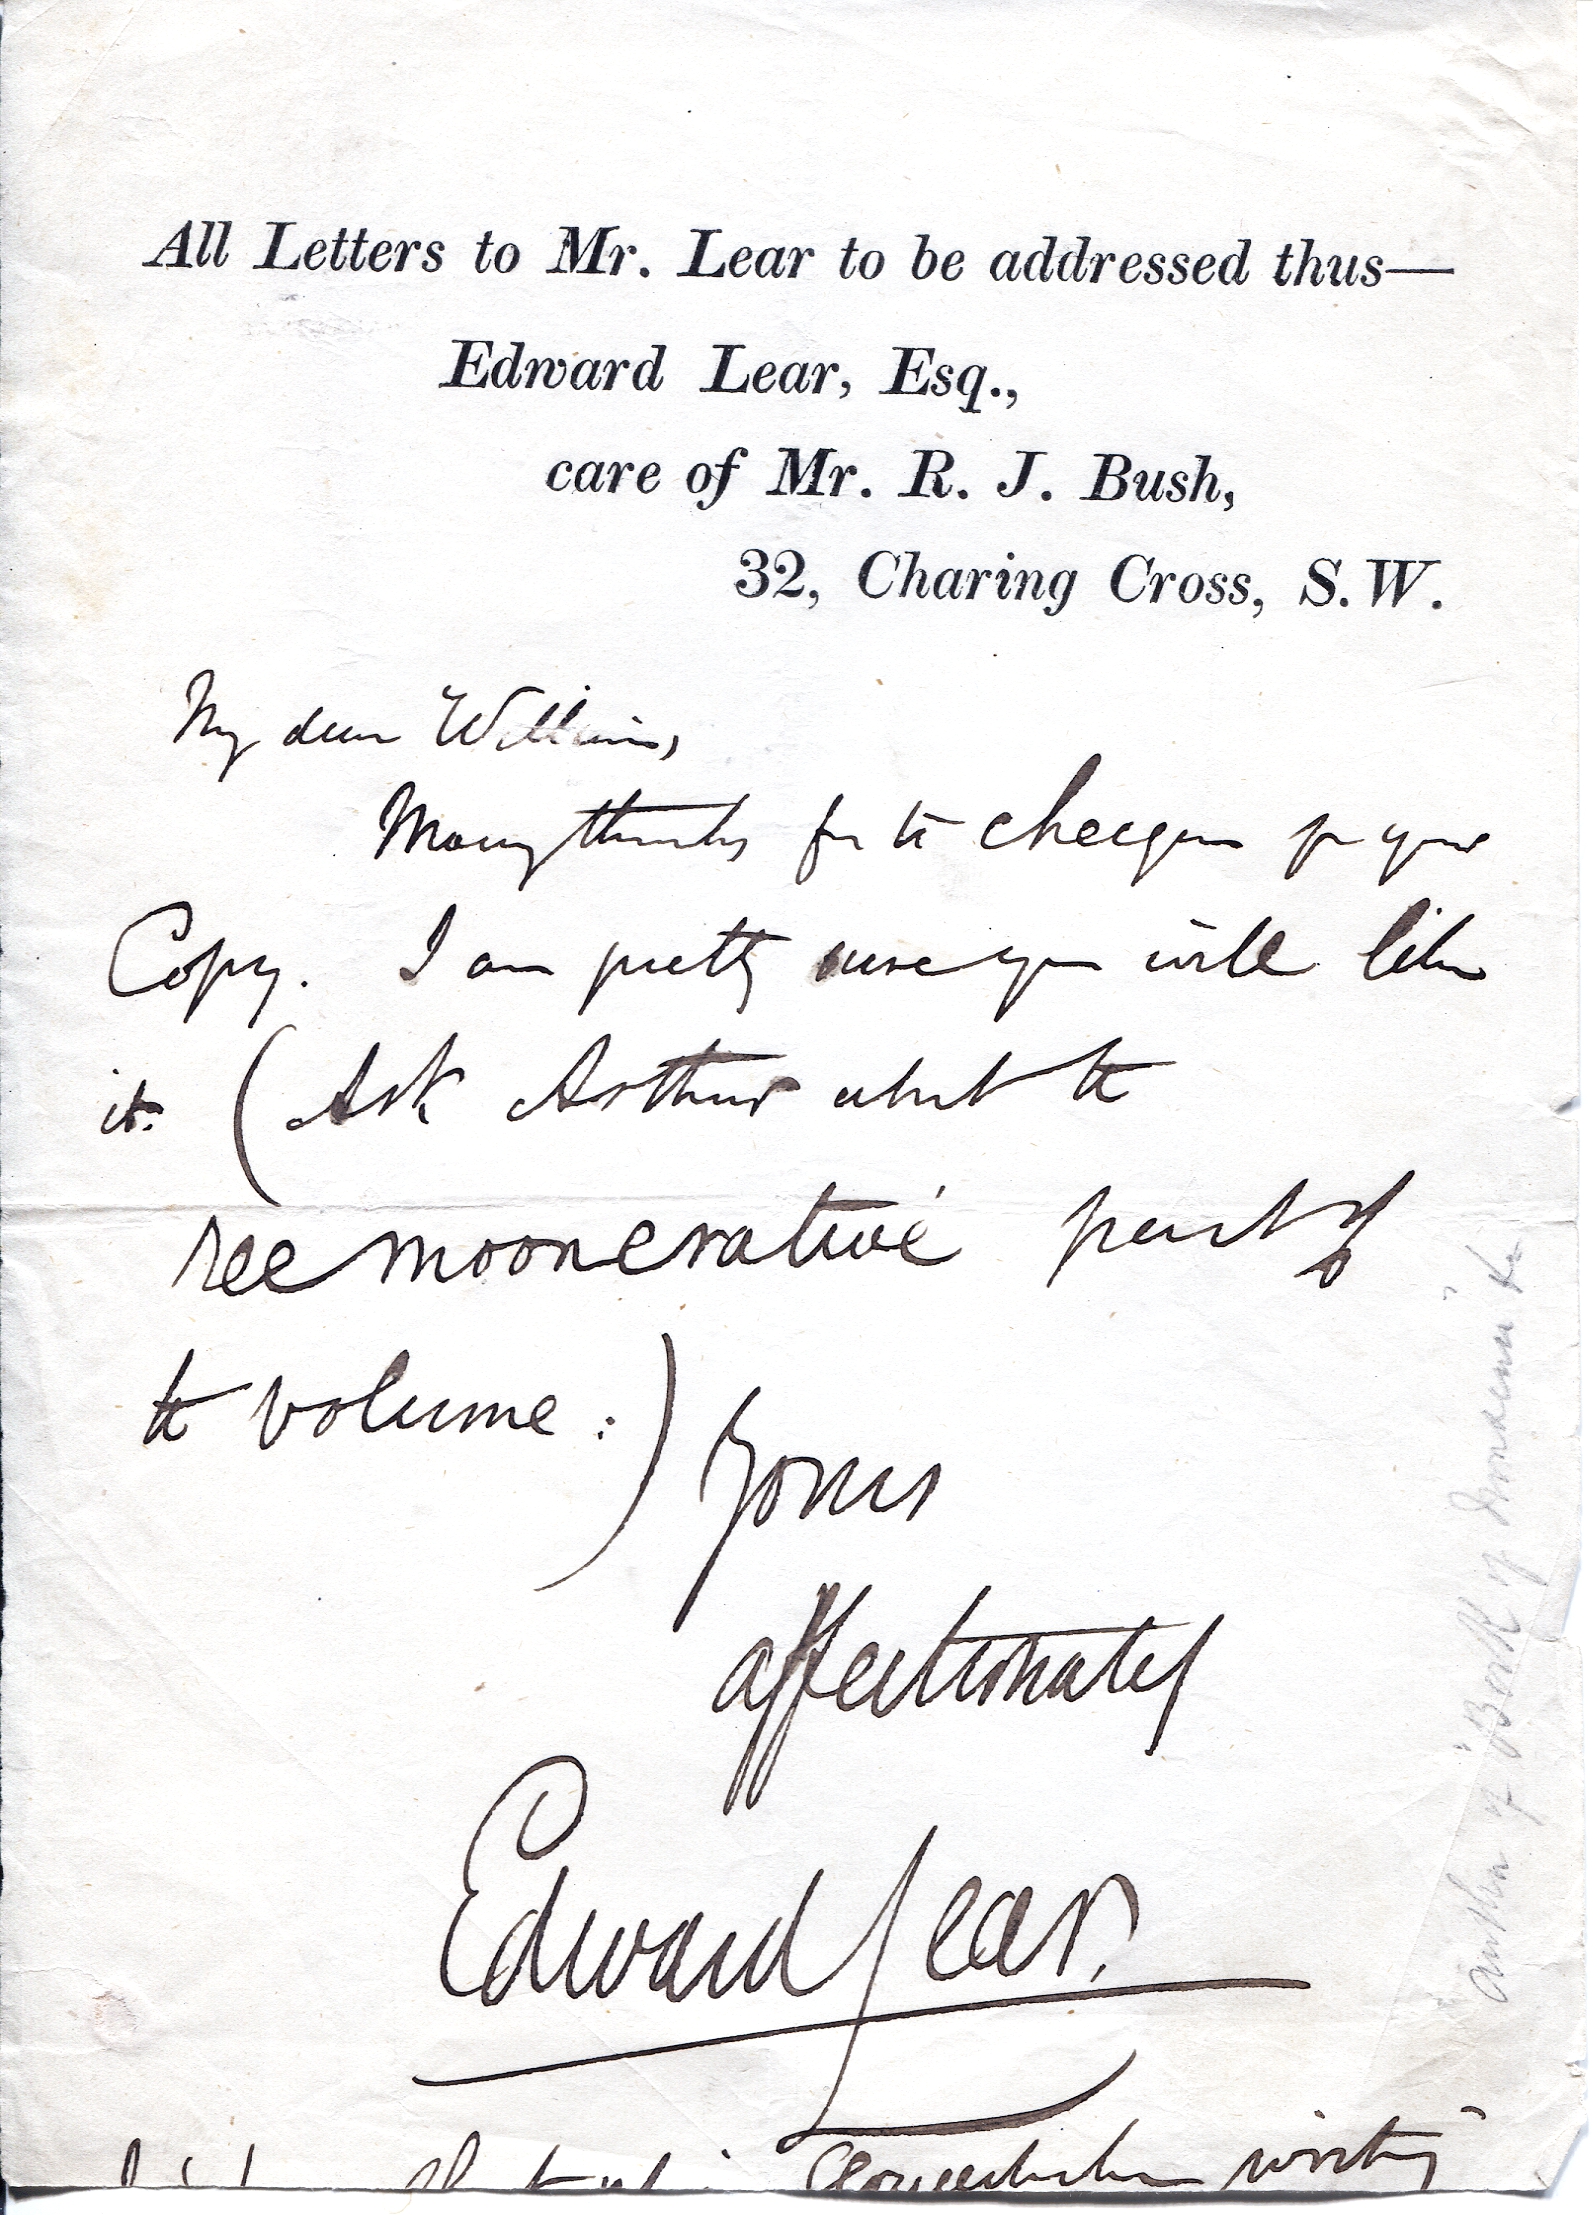 All Letters to Mr. Lear to be addressed thus—
Edward Lear, Esq.,
care of Mr. R. J. Bush,
32, Charing Cross, S.W.
My dear William,
Many thanks for the cheque for your
Copy. I am pretty sure you will like
it. (Ask Arthur about the
reemoonerative part of
the volume:) Yours
affectionately
Edward Lear.
Gloucestershire writing
Author of "Book of Nonsense" &c